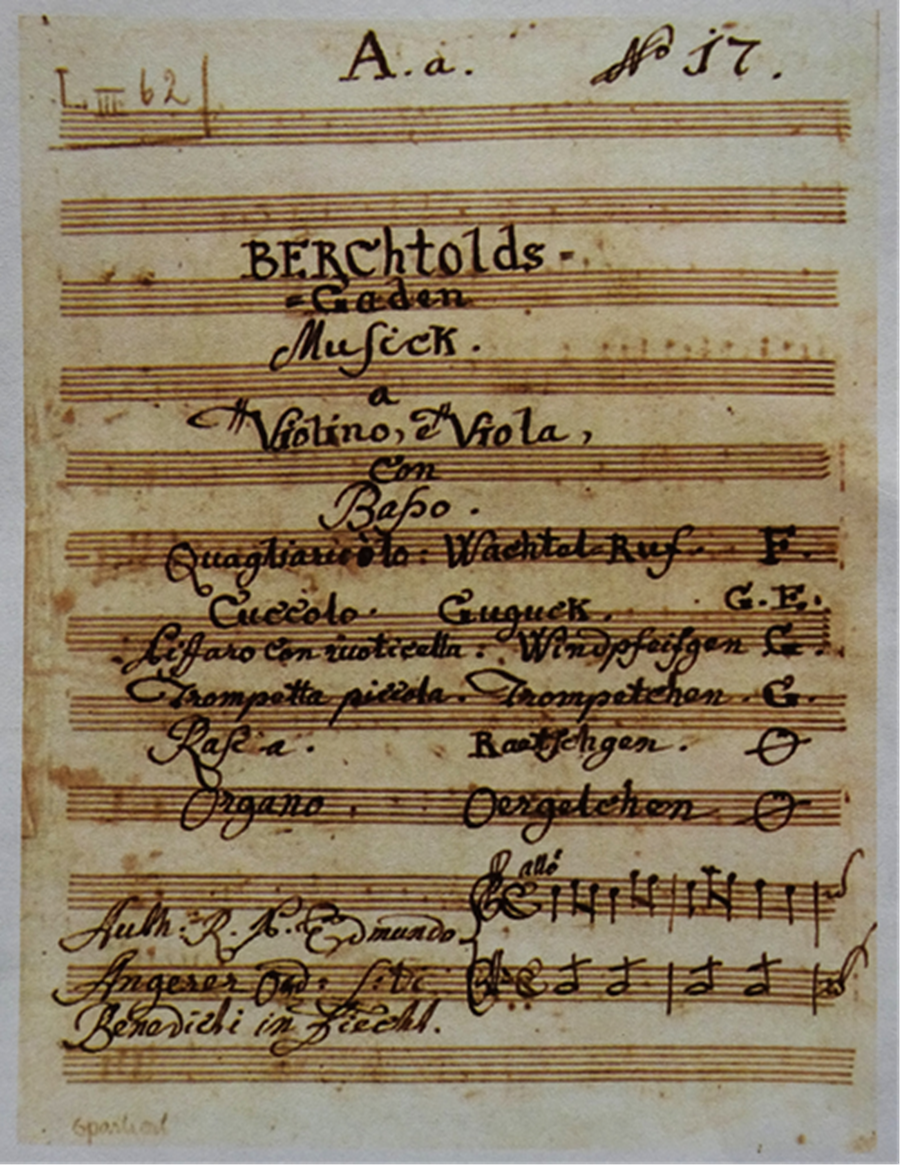 A. a. No 17.
L. III 62
BERChtolds-
=Gaden
Musick.
a
Violino, è Viola,
Con
Baßo.
Wachtel-Ruf. F.
Cuccolo. Guguck. G. E.
con Windpfeifgen G.
Trompetta piccola. Trompetchen. G.
Raetschgen.
Organo. Oergelchen
allo
Auth: R. P. Edmundo
Angerer Ord:
Benedicti in Fiecht.